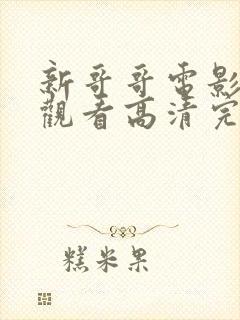 新哥哥電影
觀看高清完
糕米果